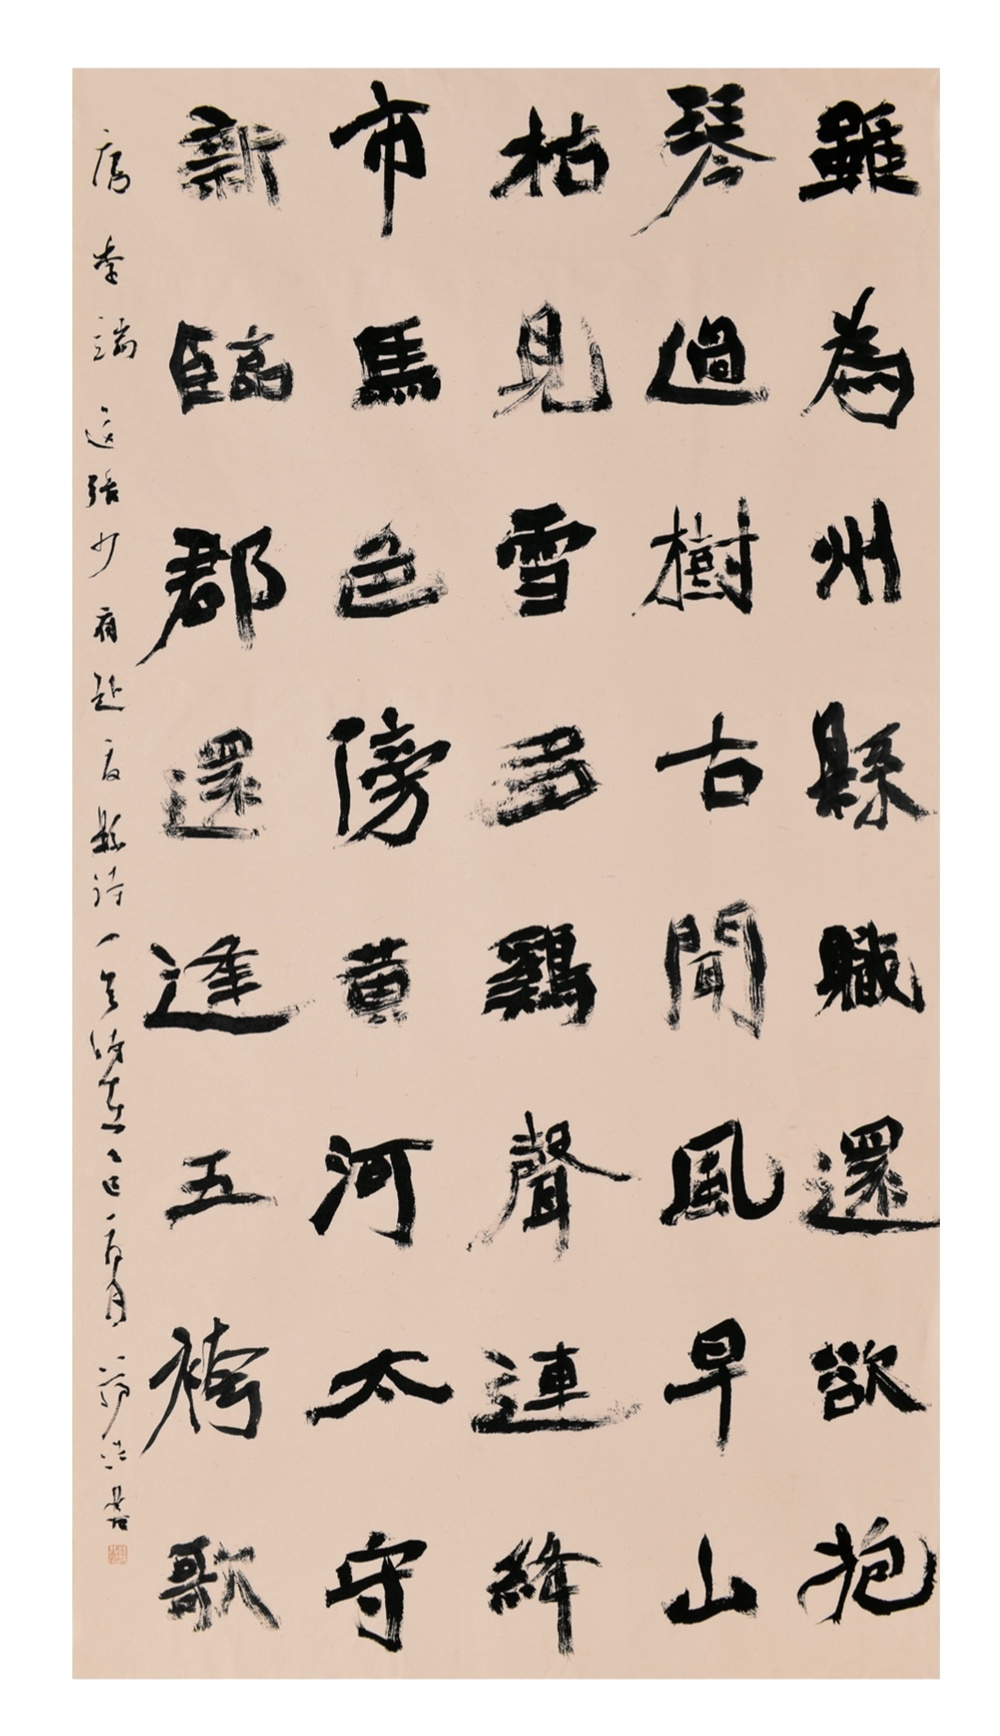 雖為州縣職還欲抱
琴過樹古聞風早山
枯見雪多鷄聲連絳
市馬色傍黄河太守
新臨郡還逢五袴歌
唐李端送張少府赴夏縣詩一首時在乙巳夏月